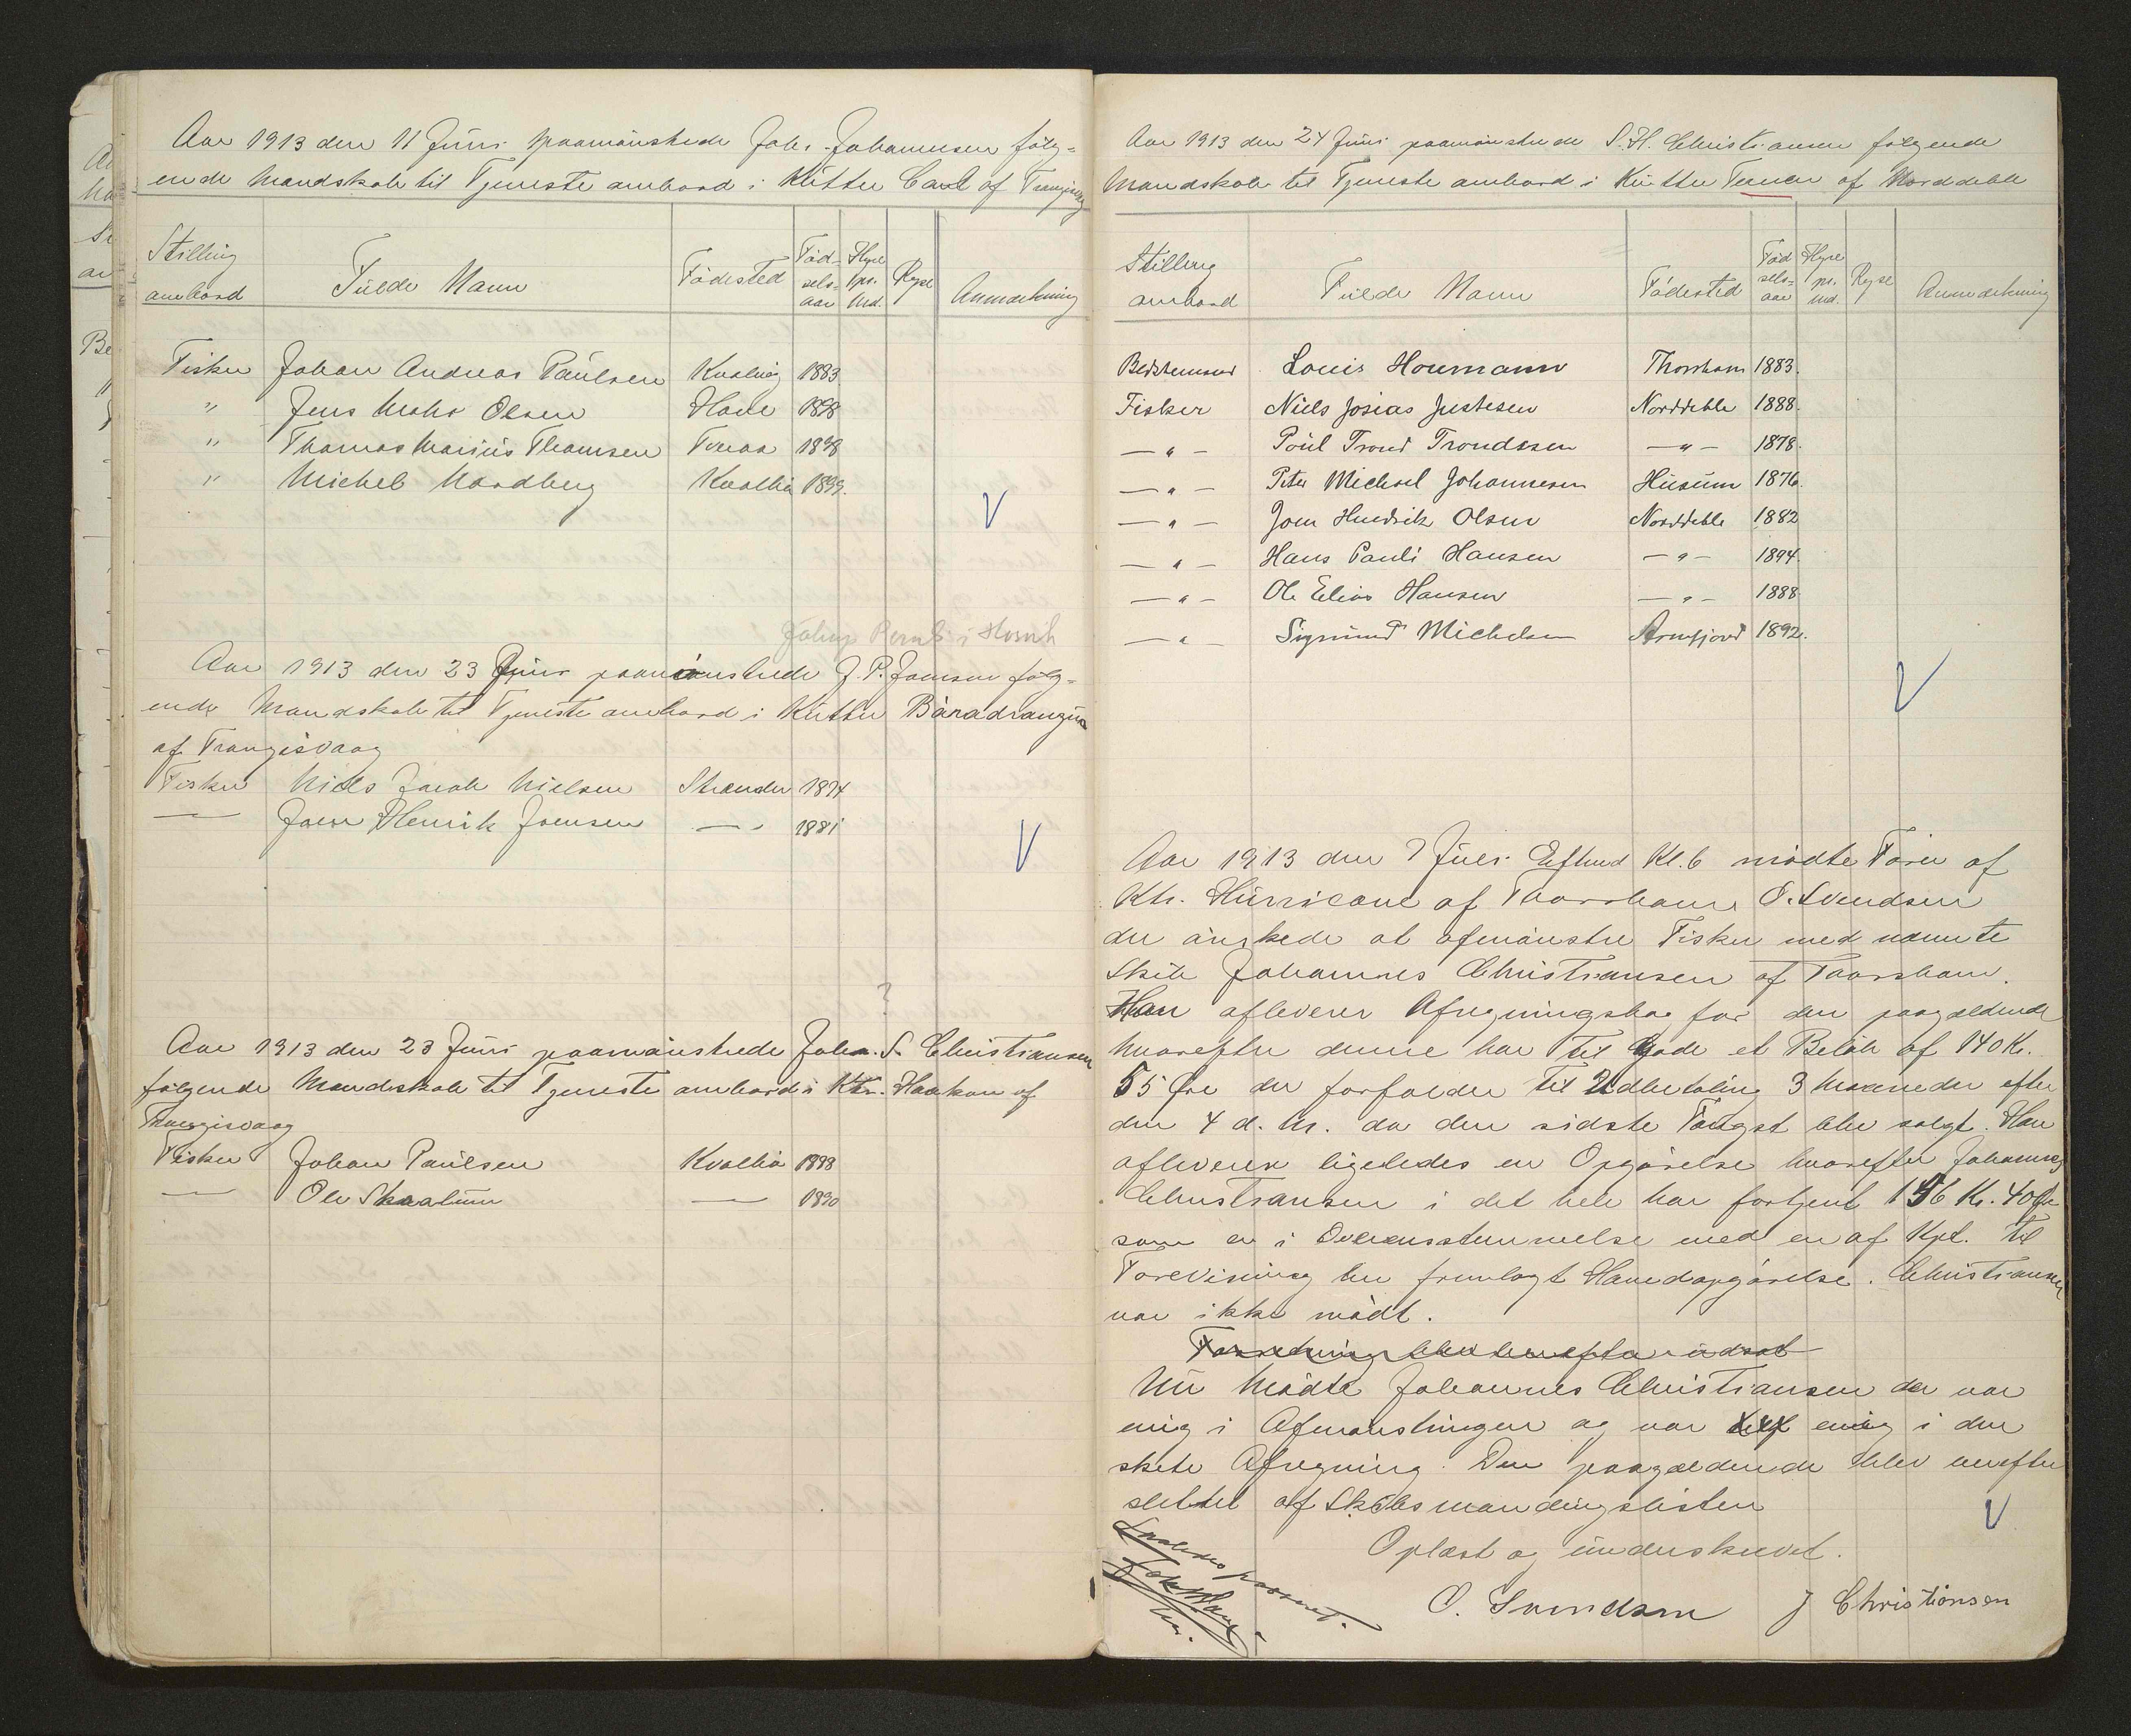 Aar 1913 den 11 Juni paamönstrede Johs. Johannesen fölg-
ende Mandskab til Tjeneste ombord i Kütter Carl af Trangisvaag
Stilling
ombord
Fulde Navn
Födested
Föd-
sels-
aar
Hyre
pr.
Md.
Rejse
Anmærkning
Fisker Johan Andreas Paulsen Kvalvig 1883
" Jens Mohr Olsen Hove 1898
" Thomas Marius Thomsen Tveraa 1898
" Michel Nordberg Kvalbø 1899.
Aar 1913 den 23 Juni paamönstrede J. P. Joensen fölg-
ende Mandskab til Tjeneste ombord i Kütter Báradrangur
af Trangisvaag
Fisker Niels Jacob Nielsen Strender 1894
— Joen Henrik Joensen — " 1881
?
Aar 1913 den 23 Juni paamönstrede Johs. S. Christiansen
følgende Mandskab til Tjeneste ombord i Ktr. Haakon af
Trangisvaag
Fisker Johan Paulsen Kvalbø 1898
— Ole Skaalum — 1890
Aar 1913 den 24 Juni paamönstrede S. H. Christiansen følgende
Mandskab til Tjeneste ombord i Kütter of Norddeble
Stilling
ombord
Fulde Navn
Födested
Föd
sels-
aar
Hyre
pr.
Md.
Rejse
Anmærkning
Bedstemand Louis Houmann Thorshavn 1883.
Fisker Niels Josias Justesen Norddeble 1888.
— " — Poul Trond Trondesen — " — 1878.
— " — Peter Michael Johannesen Husum 1876.
— " — Joen Hendrik Olsen Norddeble 1882
— " — Hans Pauli Hansen — " — 1894.
— " — Ole Elias Hansen — " — 1888
— " — Sigmund Michelsen Arnefjord 1892.
Aar 1913 den 7 Juli Eftmd Kl. 6 mödte Förer af
Ktr. Hurricane af Thorshavn O. Svendsen
der önskede at afmönstre Fisker med nævnte
Skib Johannes Christiansen af Thorshavn.
Han afleverer Afregningsbog for den paagældende
hvorefter denne har til Gode et Belöb af 140 Kr.
55 Öre der forfalder til Udbetaling 3 Maaneder efter
den 4 d. M. da den sidste Fangst blev solgt. Han
afleverer ligeledes en Opgörelse hvorefter Johannes
Christiansen i det hele har fortjent 156 Kr. 40 Öre
som er i Overensstemmelse med en af Kpt. til
Forevisning her fremlagt Hovedopgörelse. Christiansen
var ikke mödt.
Forretning blev herefter udsat
Nu Mödte Johannes Christiansen der var
enig i Afmönstringen og var enig i den
skete Afregning. Den paagældende blev herefter
slettet af Skibsmandingslisten
Oplæst og underskrevet.
O. Svendsen J Christiansen